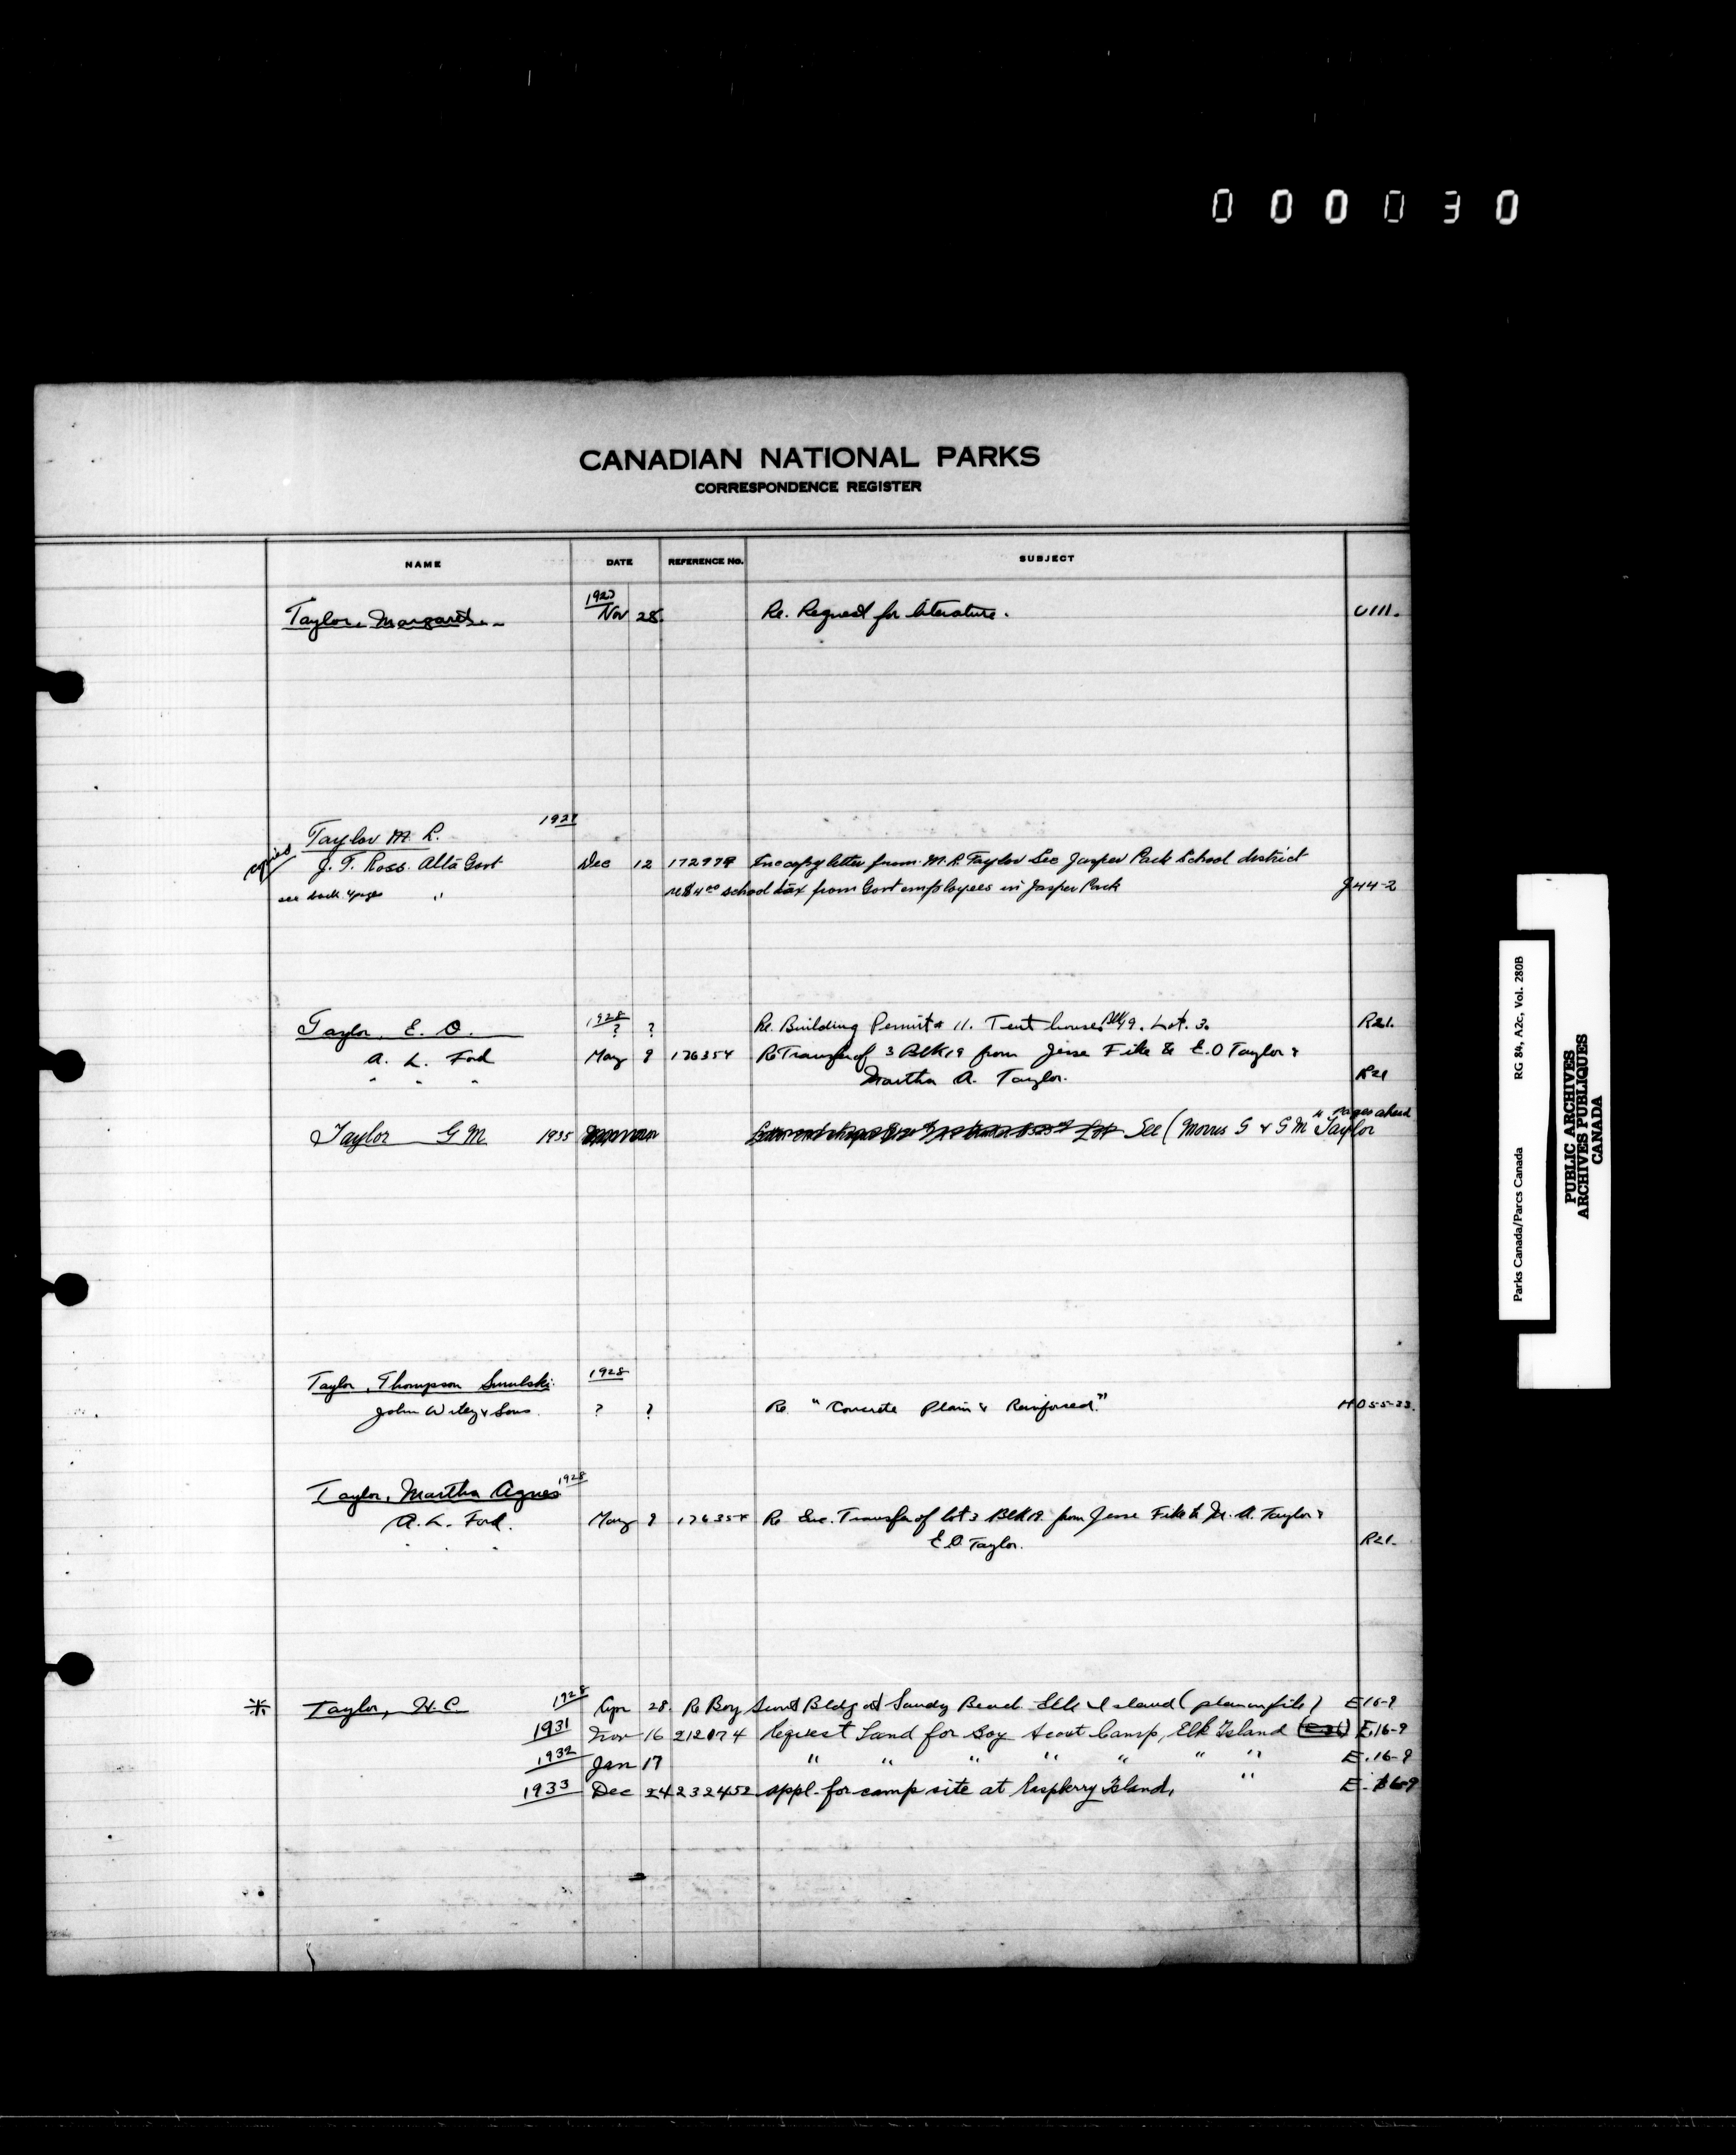 000030
CANADIAN NATIONAL PARKS
CORRESPONDENCE REGISTER
NAME DATE REFERENCE NO. SUBJECT
1927
Taylor, Margaret Nov 28. Re. Request for literature. U111.
Taylor M. R. 1927
copied J. T. Ross. Alta Govt Dec 12 Inc copy letter from M. R. Taylor Sec Jasper Park School district
see back 4 pages " re $4.00 school tax from Govt employees in Jasper Park J44-2
1928
Taylor, E. O. ? ? Re. Building Permit # 11. Tent house, Blk 19. Lot. 3. R21.
A. L. Ford May 9 176354 Re Transfer of 3 Blk 19 from Jesse Fike to E. O Taylor &
" " " Martha A. Taylor. R21
4 pages ahead
Taylor G M 1935 See (Morris G & G M Taylor
Taylor, Thompson Smulski. 1928
John Wiley & Sons. ? ? Re. "Concrete Plain & Reinforced." HO55-33.
Taylor, Martha Agnes 1928
A. L. Ford. May 9 176354 Re Transfer of lot 3 Blk 19. from Jesse Fike to M. A. Taylor &
" " " E. O. Taylor. R21.
* Taylor, H. C. 1928 Apr 28 Re Boy Scout Bldg at Sandy Beach Elk Island (plan on file) E16-9
1931 Nov 16 212074 Request Land for Boy Scout Camp, Elk Island E.16-9
1932 Jan 17 " " " " " " " E.16-9
1933 Dec 24 232452 appl. for camp site at Raspberry Island, " E. 16-9
Parks Canada/Parcs Canada RG 84, A2c, Vol. 280B
PUBLIC ARCHIVES
ARCHIVES PUBLIQUES
CANADA